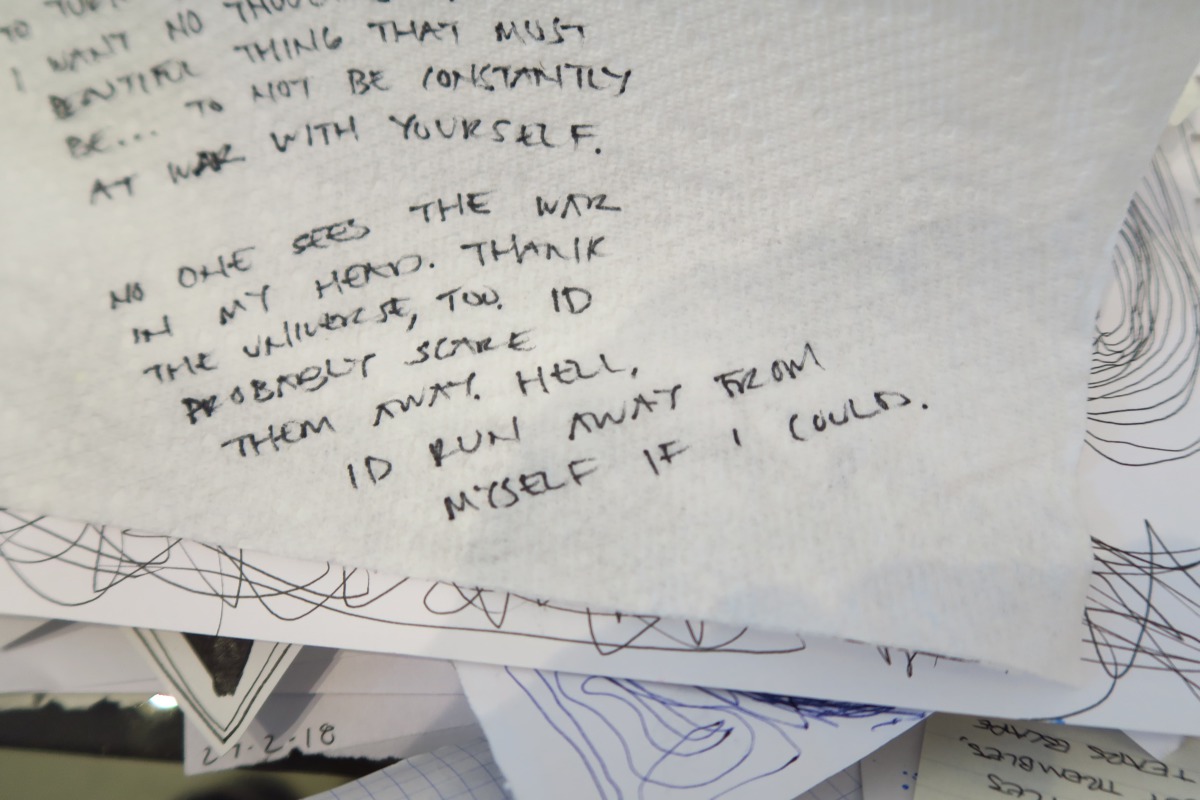 TO TURN
I WANT NO THOUGHTS
BEAUTIFUL THING THAT MUST
BE... TO NOT BE CONSTANTLY
AT WAR WITH YOURSELF.
NO ONE SEES THE WAR
IN MY HEAD. THANK
THE UNIVERSE, TOO. ID
PROBABLY SCARE
THEM AWAY. HELL,
ID RUN AWAY FROM
MYSELF IF I COULD.
27-2-18
TREMBLES,
TEARS ESCAPE